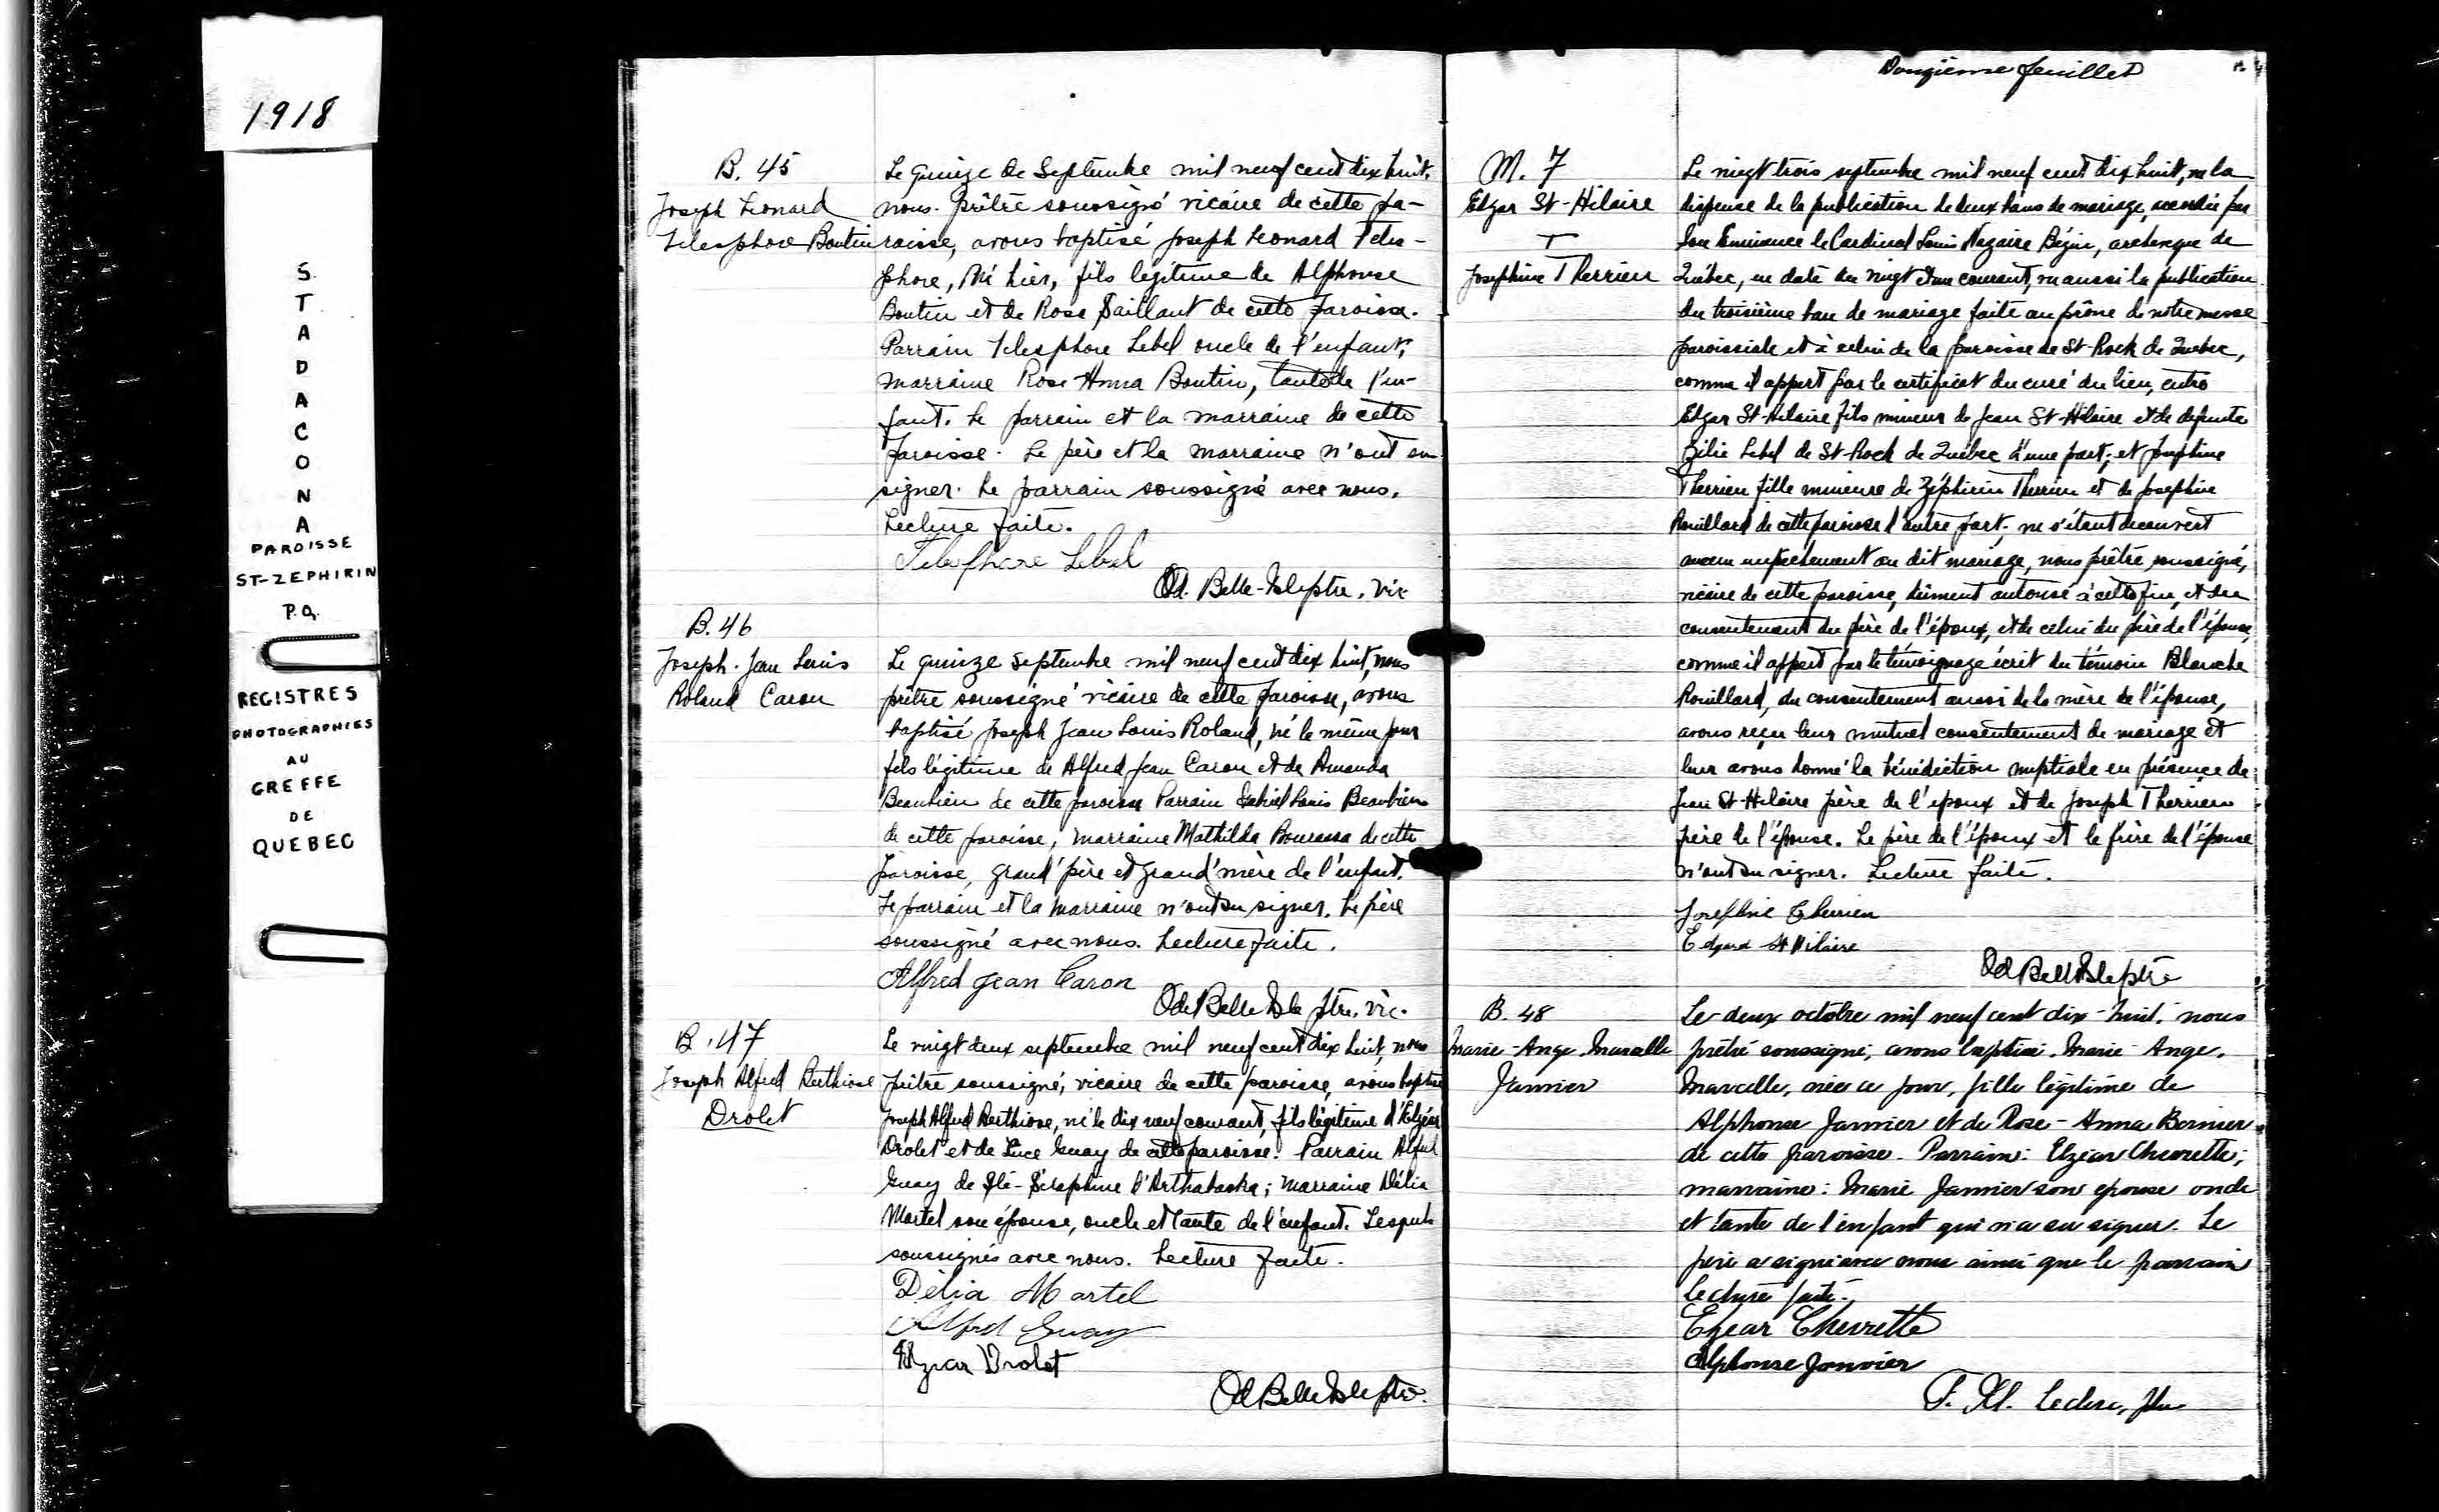 1918
S
T
A
D
A
C
O
N
A
PAROISSE
ST-ZEPHIRIN
P.Q.
REGISTRES
PHOTOGRAPHIES
AU
GREFFE
DE
QUEBEC
B. 45
Joseph Leonard
Telesphore Boutin
Le quinze de Septembre mil neuf cent dix huit,
nous prêtre soussigné vicaire de cette pa-
roisse, avons baptisé Joseph Leonard Teles-
phore, né hier, fils légitime de Alphonse
Boutin et de Rose Vaillant de cette paroisse.
Parrain Telesphore Lebel oncle de l'enfant,
marraine Rose Anna Boutin, tante de l'en-
fant. Le parrain et la marraine de cette
paroisse. Le père et la marraine n'ont su
signer. Le parrain soussigné avec nous.
Lecture faite.
Telesphore Lebel
Od. Belle-Isle ptre, vic.
B. 46
Joseph. Jean Louis
Roland Caron
Le quinze septembre mil neuf cent dix huit, nous
prêtre soussigné vicaire de cette paroisse, avons
baptisé Joseph Jean Louis Roland, né le même jour
fils légitime de Alfred Jean Caron et de Amanda
Beaubien de cette paroisse Parrain Louis Beaubien
de cette paroisse, marraine Mathilda Bourassa de cette
paroisse, grand'père et grand'mère de l'enfant.
Le parrain et la marraine n'ont su signer. Le père
soussigné avec nous. Lecture faite.
Alfred Jean Caron
Od Belle Isle ptre, vic.
B. 47
Joseph Alfred
Drolet
Le vingt deux septembre mil neuf cent dix huit, nous
prêtre soussigné, vicaire de cette paroisse, avons baptisé
Joseph Alfred né le dix neuf courant, fils légitime d'Elzéar
Drolet et de Luce Guay de cette paroisse. Parrain Alfred
Guay de Ste-Séraphine d'Arthabaska; marraine Délia
Martel son épouse, oncle et tante de l'enfant. Lesquels
soussignés avec nous. Lecture faite.
Délia Martel
Alfred Guay
Elzear Drolet
Od Belle Isle ptre.
Douzième feuillet
M. 7
Edgar St-Hilaire
&
Josephine Therrien
Le vingt trois septembre mil neuf cent dix huit, vu la
dispense de la publication de deux bans de mariage, accordée par
Son Eminence le Cardinal Louis Nazaire Bégin, archevêque de
Québec, en date du vingt et un courant, vu aussi la publication
du troisième ban de mariage faite au prône de notre messe
paroissiale et à celui de la paroisse de St-Roch de Quebec,
comme il appert par le certificat du curé du lieu, entre
Edgar St-Hilaire fils mineur de Jean St-Hilaire et de defunte
Zélie Lebel de St-Roch de Québec d'une part; et Josephine
Therrien fille mineure de Zéphirin Therrien et de Josephine
Rouillard de cette paroisse d'autre part; ne s'étant découvert
aucun empêchement au dit mariage, nous prêtre soussigné,
vicaire de cette paroisse, dûment autorisé à cette fin, et du
consentement du père de l'époux, et de celui du père de l'épouse,
comme il appert par le témoignage écrit du témoin Blanche
Rouillard, du consentement aussi de la mère de l'épouse,
avons reçu leur mutuel consentement de mariage et
leur avons donné la bénédiction nuptiale en présence de
Jean St-Hilaire père de l'époux et de Joseph Therrien
frère de l'épouse. Le père de l'époux et le frère de l'épouse
n'ont su signer. Lecture faite.
Josephine Therrien
Edgard St Hilaire
Od Belle Isle ptre
B. 48
Marie-Ange. Marcelle
Janvier
Le deux octobre mil neuf cent dix-huit, nous
prêtre soussigné, avons baptisé Marie-Ange.
Marcelle, née ce jour, fille légitime de
Alphonse Janvier et de Rose-Anna Bernier
de cette paroisse. Parrain: Elzéar Chevrette;
marraine: Marie Janvier son epouse oncle
et tante de l'enfant qui n'a su signer. Le
père a signé avec nous ainsi que le parrain
lecture faite.
Elzear Chevrette
Alphonse Janvier
Leclerc, ptre